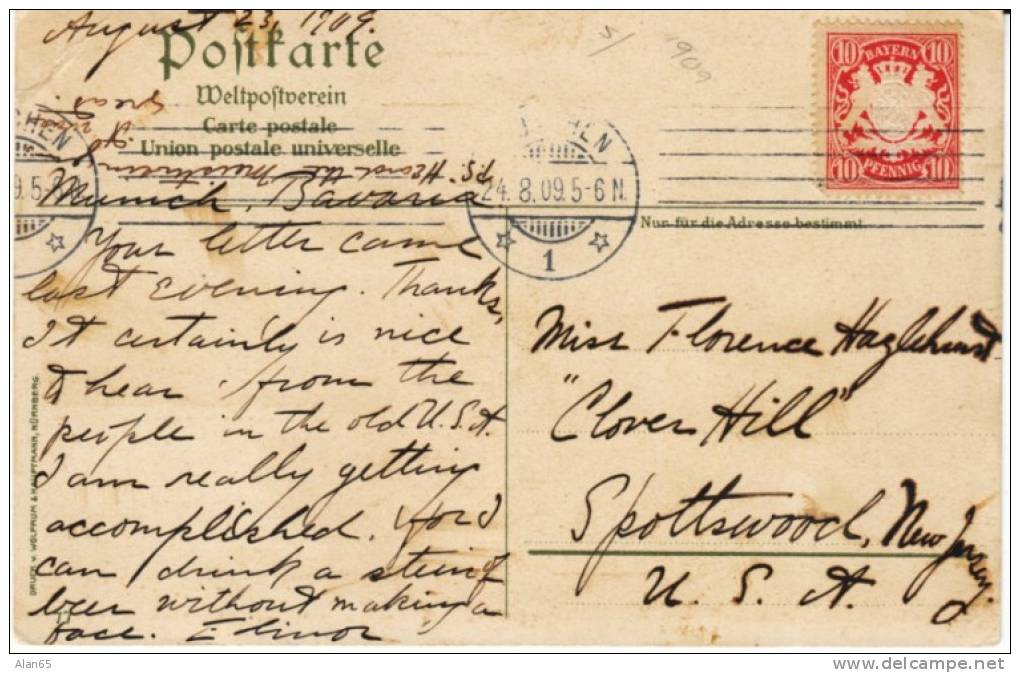 August 23, 1909.
Postkarte
Weltpostverein
Carte postale
Union postale universelle
P.S. Heard the
Munich, Bavaria
Your letter came
last evening. Thanks,
It certainly is nice
to hear from the
people in the old U.S.A.
I am really getting
accomplished, for I
can drink a stein of
beer without making a
face. Elinor
DRUCK v. WOLFRUM & HAUPTMANN, NÜRNBERG.
5/
1909
CHEN
9.5-
CHEN
24.8.09.5-6 N.
1
10 BAYERN 10
10 PFENNIG 10
Nur für die Adresse bestimmt.
Miss Florence Hazlehurst
"Clover Hill"
Spottswood, New Jersey.
U. S. A.
Alan65
www.delcampe.net